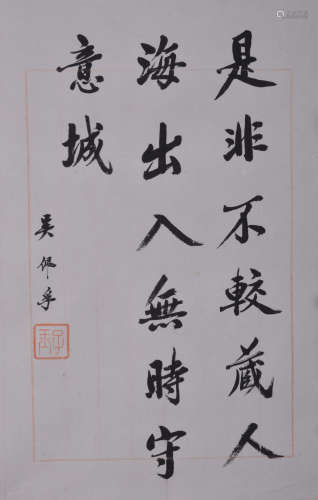 是非不較藏人
海出入無時守
意城
吳佩孚